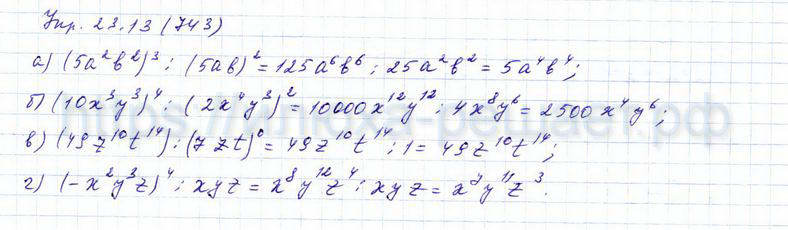 Упр. 23.13 (743)
а) (5a²b²)³ : (5ab)² = 125a⁶b⁶ : 25a²b² = 5a⁴b⁴;
б) (10x³y³)⁴ : (2x⁴y³)² = 10000x¹²y¹² : 4x⁸y⁶ = 2500x⁴y⁶;
в) (49z¹⁰t¹⁴) : (7zt)⁰ = 49z¹⁰t¹⁴ : 1 = 49z¹⁰t¹⁴;
г) (-x²y³z)⁴ : xyz = x⁸y¹²z⁴ : xyz = x⁷y¹¹z³.